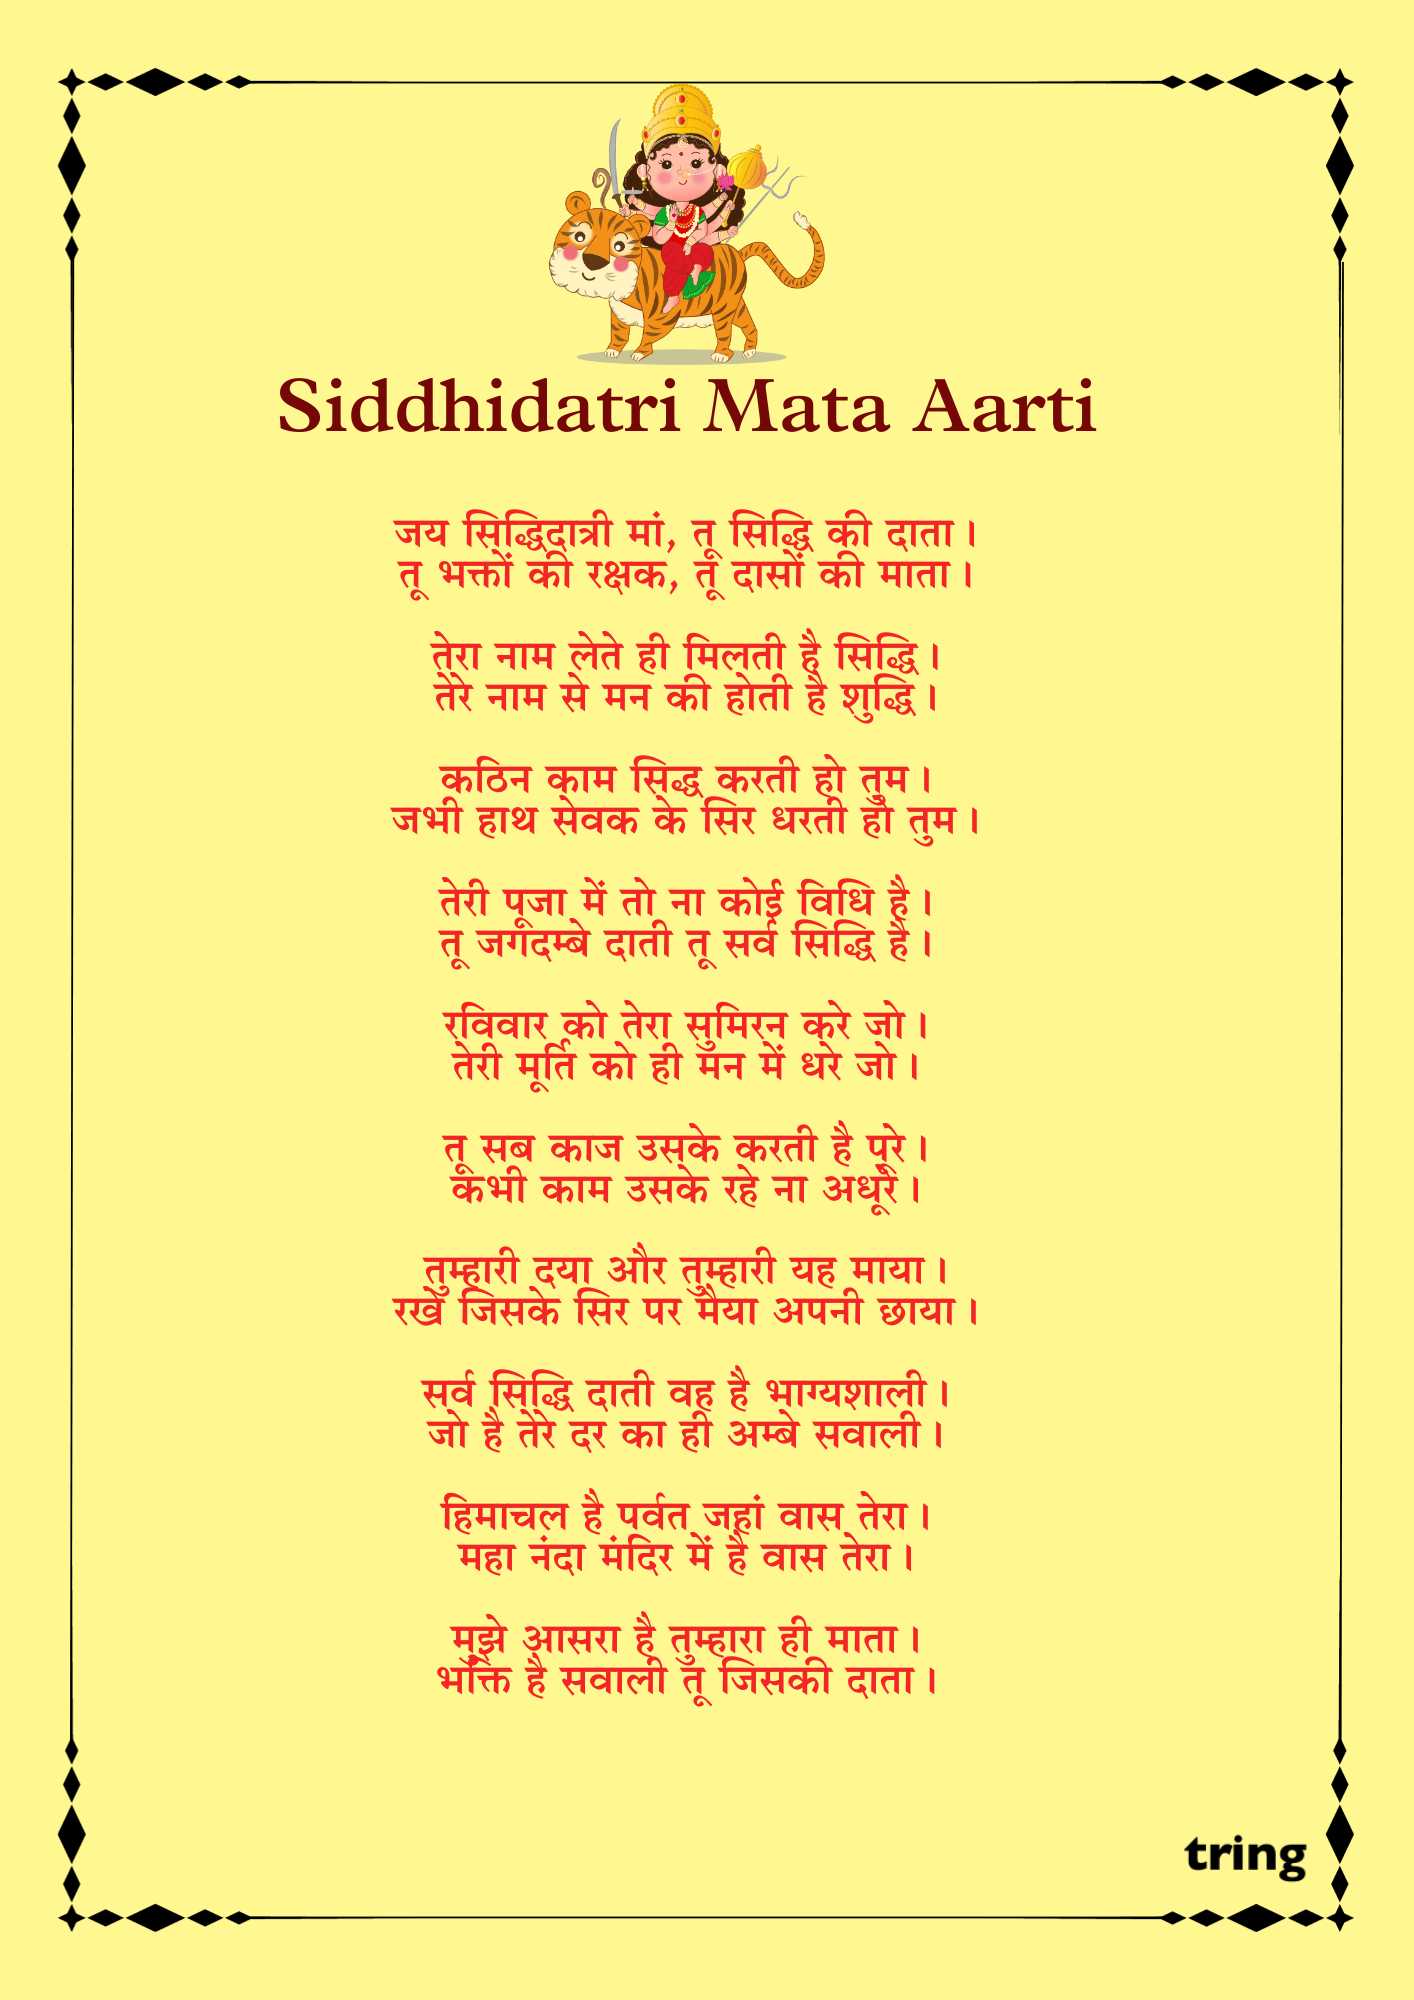 Siddhidatri Mata Aarti
जय सिद्धिदात्री मां, तू सिद्धि की दाता।
तू भक्तों की रक्षक, तू दासों की माता।
तेरा नाम लेते ही मिलती है सिद्धि।
तेरे नाम से मन की होती है शुद्धि।
कठिन काम सिद्ध करती हो तुम।
जभी हाथ सेवक के सिर धरती हो तुम।
तेरी पूजा में तो ना कोई विधि है।
तू जगदम्बे दाती तू सर्व सिद्धि है।
रविवार को तेरा सुमिरन करे जो।
तेरी मूर्ति को ही मन में धरे जो।
तू सब काज उसके करती है पूरे।
कभी काम उसके रहे ना अधूरे।
तुम्हारी दया और तुम्हारी यह माया।
रखे जिसके सिर पर मैया अपनी छाया।
सर्व सिद्धि दाती वह है भाग्यशाली।
जो है तेरे दर का ही अम्बे सवाली।
हिमाचल है पर्वत जहां वास तेरा।
महा नंदा मंदिर में है वास तेरा।
मुझे आसरा है तुम्हारा ही माता।
भक्ति है सवाली तू जिसकी दाता।
tring